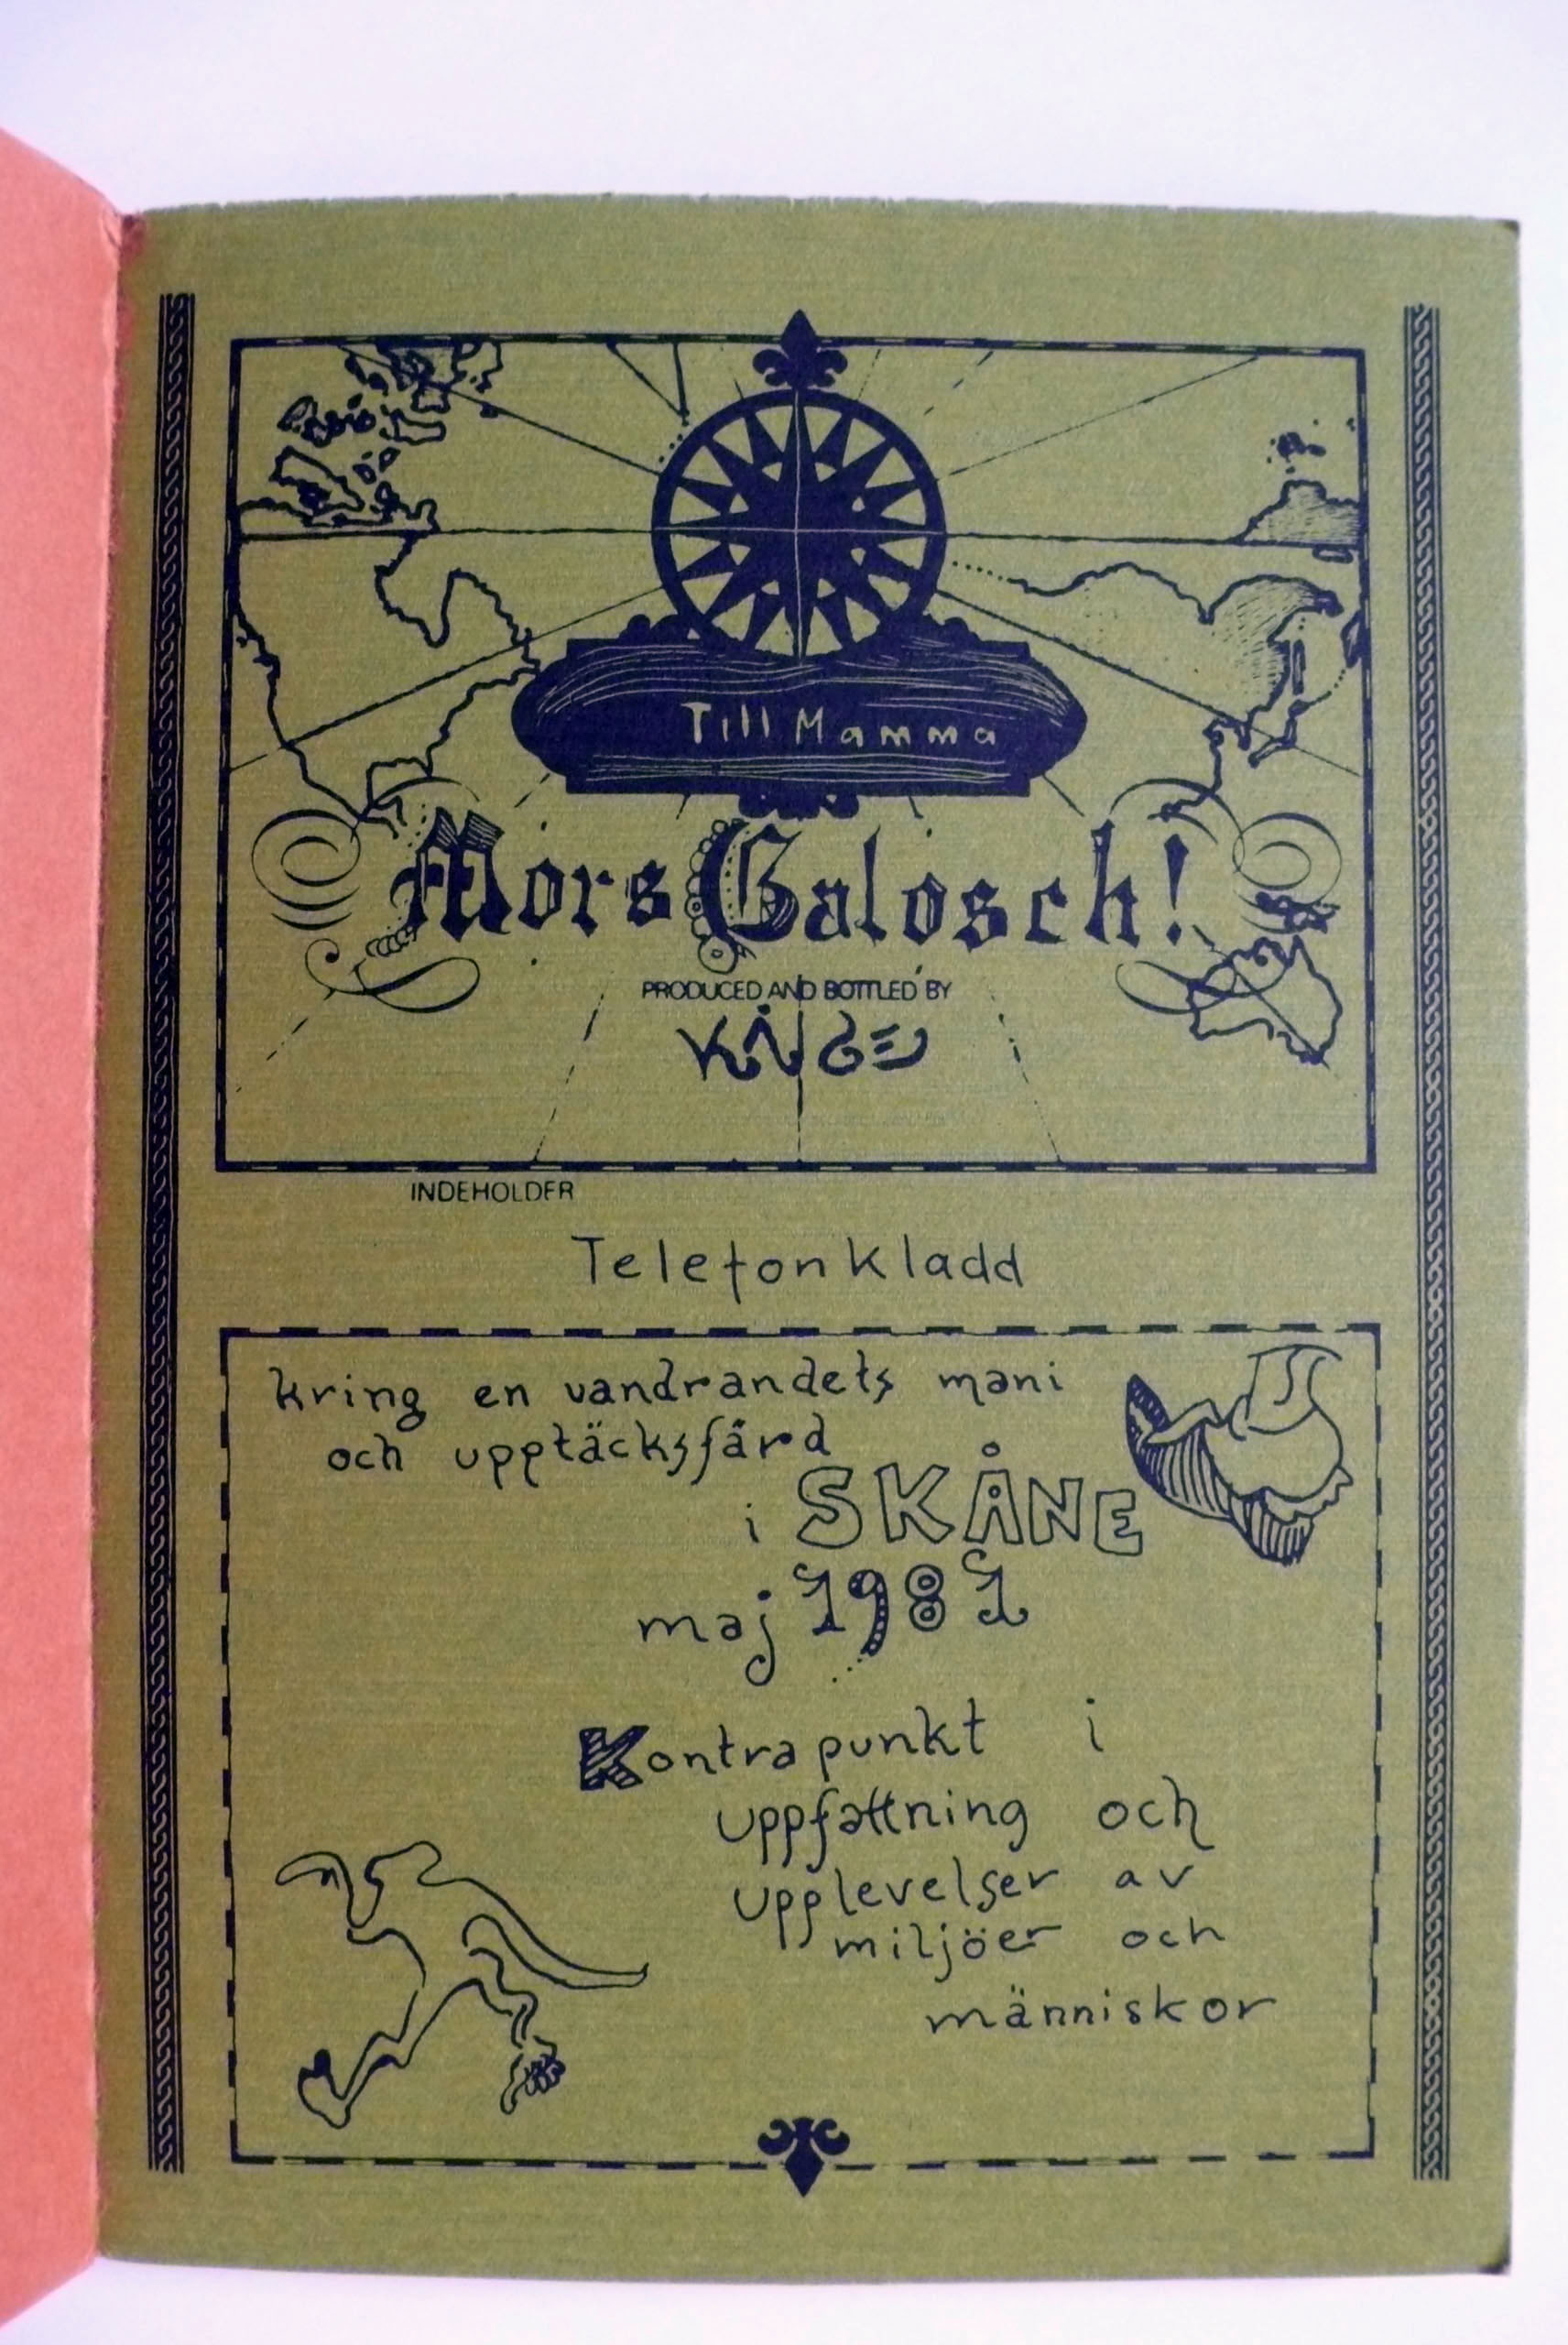 Till Mamma
Mors Galosch!
PRODUCED AND BOTTLED BY
INDEHOLDER
Telefonkladd
kring en vandrandets mani
och upptäcksfärd
i SKÅNE
maj 1981
Kontrapunkt i
uppfattning och
upplevelser av
miljöer och
människor